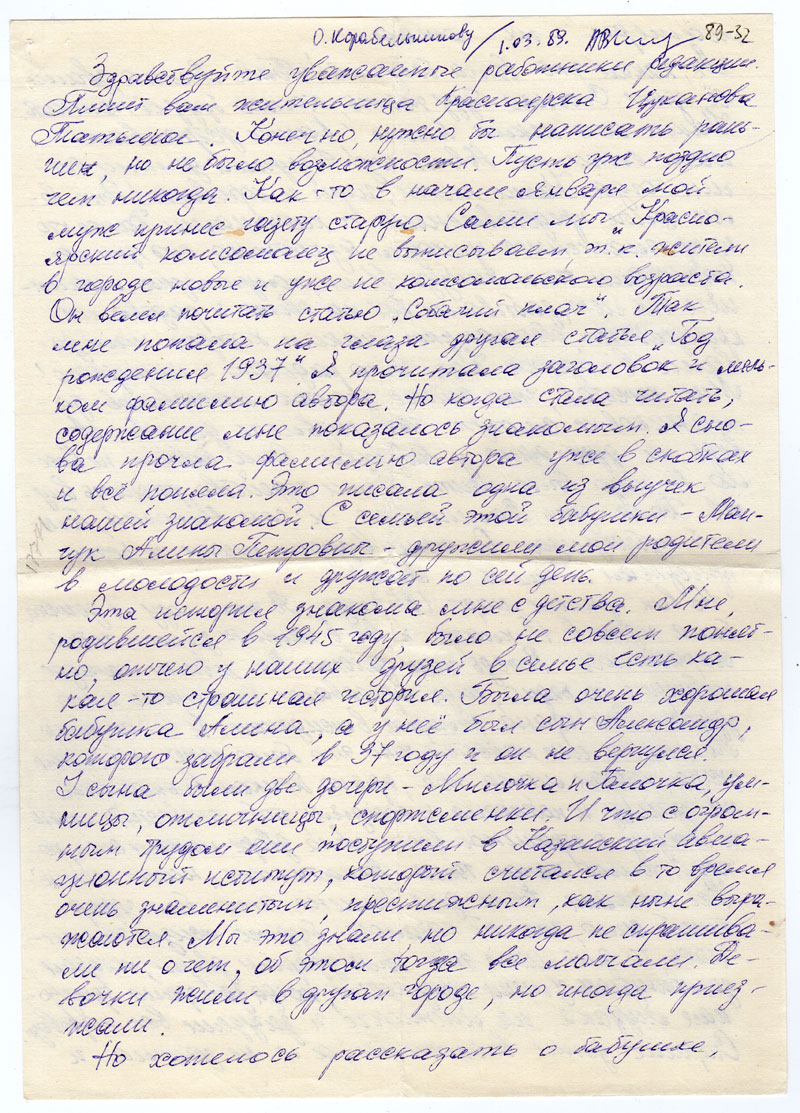 О. Корабельникову
1.03.89.
89-32
Здравствуйте уважаемые работники редакции.
Пишет вам жительница Красноярска Цуканова
Татьяна. Конечно, нужно бы написать рань-
ше, но не было возможности. Пусть уж поздно
чем никогда. Как-то в начале января мой
муж принес газету старую. Сами мы „Красно-
ярский комсомолец не выписываем, т.к. жители
в городе новые и уже не комсомольского возраста.
Он велел почитать статью „Собачий плач“. Так
мне попала на глаза другая статья „Год
рождения 1937“. Я прочитала заголовок и мель-
ком фамилию автора. Но когда стала читать,
содержание мне показалось знакомым. Я сно-
ва прочла фамилию автора уже в скобках
и всё поняла. Это писала одна из внучек
нашей знакомой. С семьей этой бабушки – Ман-
чук Алины Петровны – дружили мои родители
в молодости и дружат по сей день.
Эта история знакома мне с детства. Мне,
родившейся в 1945 году, было не совсем понят-
но, отчего у наших друзей в семье есть ка-
кая-то страшная история. Была очень хорошая
бабушка Алина, а у неё был сын Александр,
которого забрали в 37 году и он не вернулся.
У сына были две дочери – Милочка и Галочка, ум-
ницы, отличницы, спортсменки. И что с огром-
ным трудом они поступили в Казанский авиа-
ционный иститут, который считался в то время
очень знаменитым, престижным, как ныне выра-
жаются. Мы это знали, но никогда не спрашива-
ли ни о чем, об этом тогда все молчали. Де-
вочки жили в другом городе, но иногда приез-
жали.
Но хотелось рассказать о бабушке,